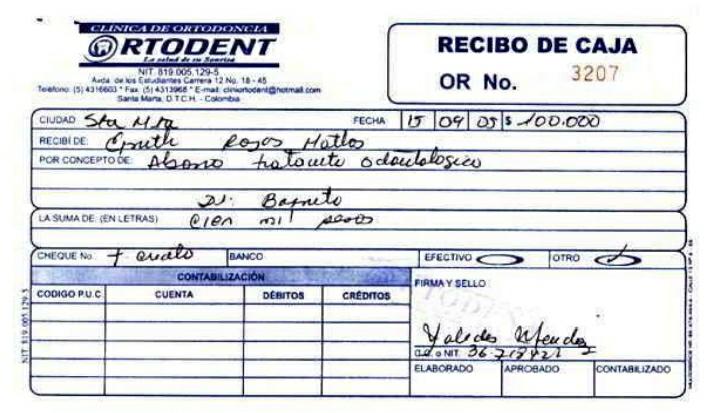 CLINICA DE ORTODONCIA
ORTODENT
La salud de su Sonrisa
NIT. 819.005.129-5
Avda. de los Estudiantes Carrera 12 No. 18 - 45
Teléfono: (5) 4316603 * Fax: (5) 4313968 * E-mail: cliniortodent@hotmail.com
Santa Marta, D.T.C.H. - Colombia
RECIBO DE CAJA
OR No. 3207
CIUDAD Sta Mta FECHA 15 09 05 $ 100.000
RECIBI DE: Rosas Mattos
POR CONCEPTO DE: Abono odontologico
Dr. Barreto
LA SUMA DE: (EN LETRAS) Cien mil pesos
CHEQUE No. BANCO EFECTIVO OTRO
CONTABILIZACIÓN FIRMA Y SELLO
CODIGO P.U.C CUENTA DÉBITOS CRÉDITOS
C.C. o NIT.
ELABORADO APROBADO CONTABILIZADO
NIT. 819.005.129-5